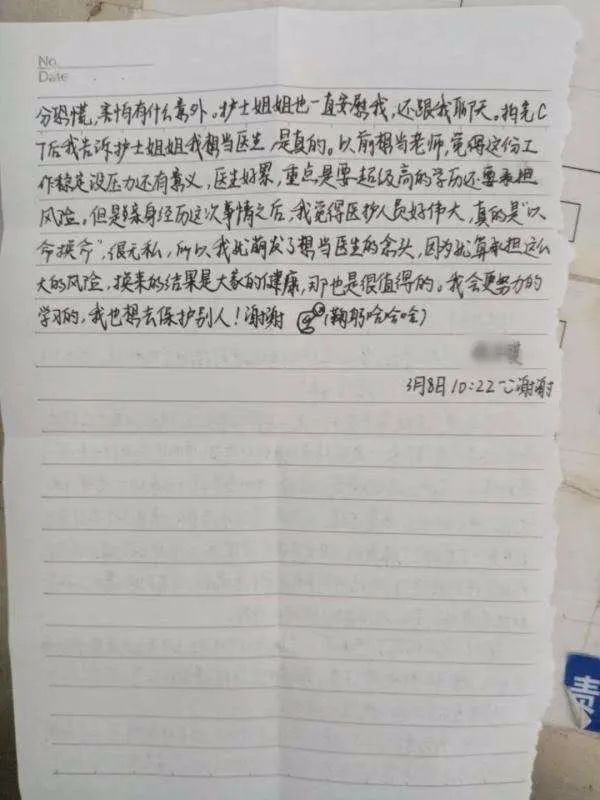 No.
Date
分恐慌，害怕有什么意外。护士姐姐也一直安慰我，还跟我聊天。拍完C
T后我告诉护士姐姐我想当医生，是真的。以前想当老师，觉得这份工
作稳定没压力还有意义，医生好累，重点是要超级高的学历还要承担
风险。但是亲身经历这次事情之后，我觉得医护人员好伟大，真的是“以
命换命”，很无私，所以我就萌发了想当医生的念头，因为就算承担这么
大的风险，换来的结果是大家的健康，那也是很值得的。我会更努力的
学习的，我也想去保护别人！谢谢（鞠躬哈哈哈）
3月8日10:22 谢谢
责